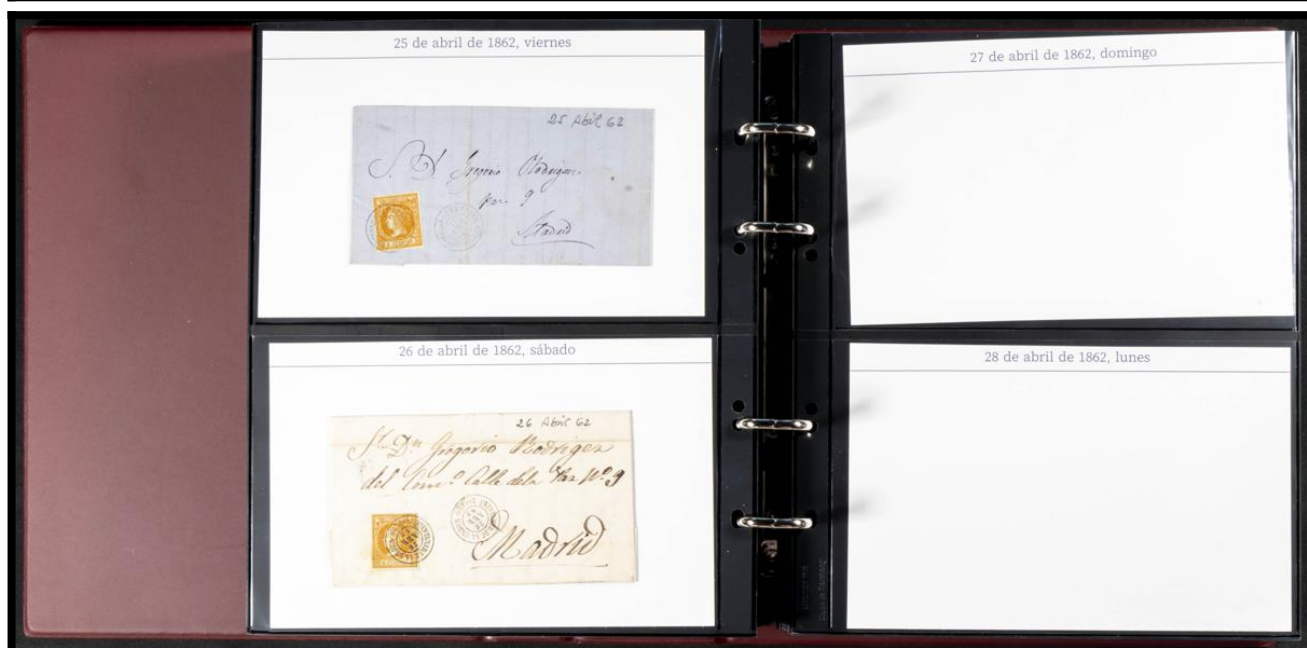 25 de abril de 1862, viernes
25 Abil 62
S. D. Gregorio Rodriguez
Paz 9
Madrid
26 de abril de 1862, sábado
26 Abril 62
Sr. Dn. Gregorio Rodrigez
del Com.o Calle dela Paz Nº 9
Madrid
27 de abril de 1862, domingo
28 de abril de 1862, lunes